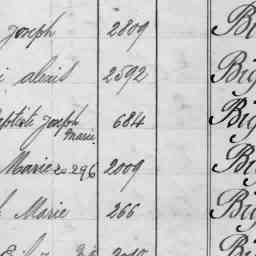 Joseph 2809 Big
alexis 2592 Big
eptiste Joseph Marie 684 Big
Marie 20296 2009 Big
Marie 266 Big